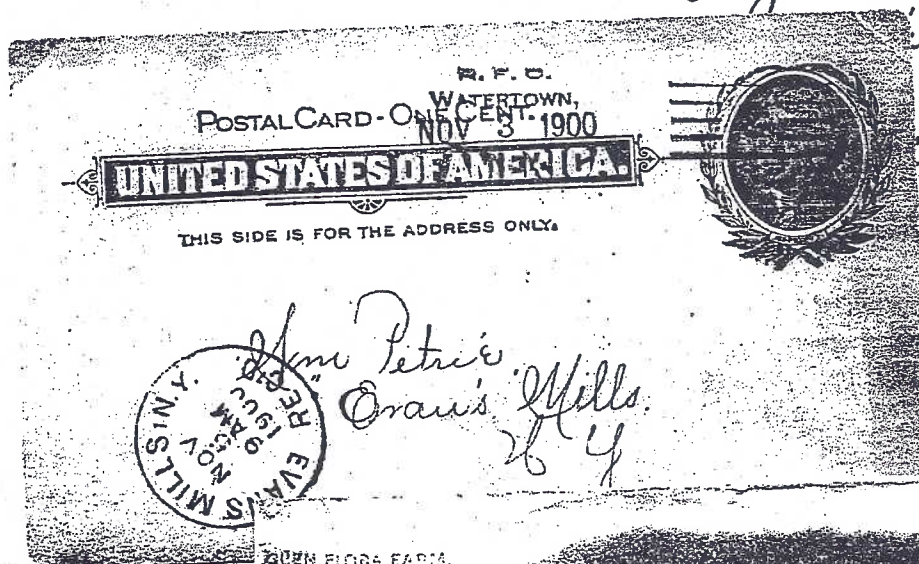 R. F. D.
WATERTOWN,
NOV 3 1900
POSTAL CARD - ONE CENT.
UNITED STATES OF AMERICA.
THIS SIDE IS FOR THE ADDRESS ONLY.
Wm Petrie
Evan's Mills.
N Y
EVANS MILLS N.Y.
NOV
9 AM
1900
REC'D
GLEN FLORA FARM.